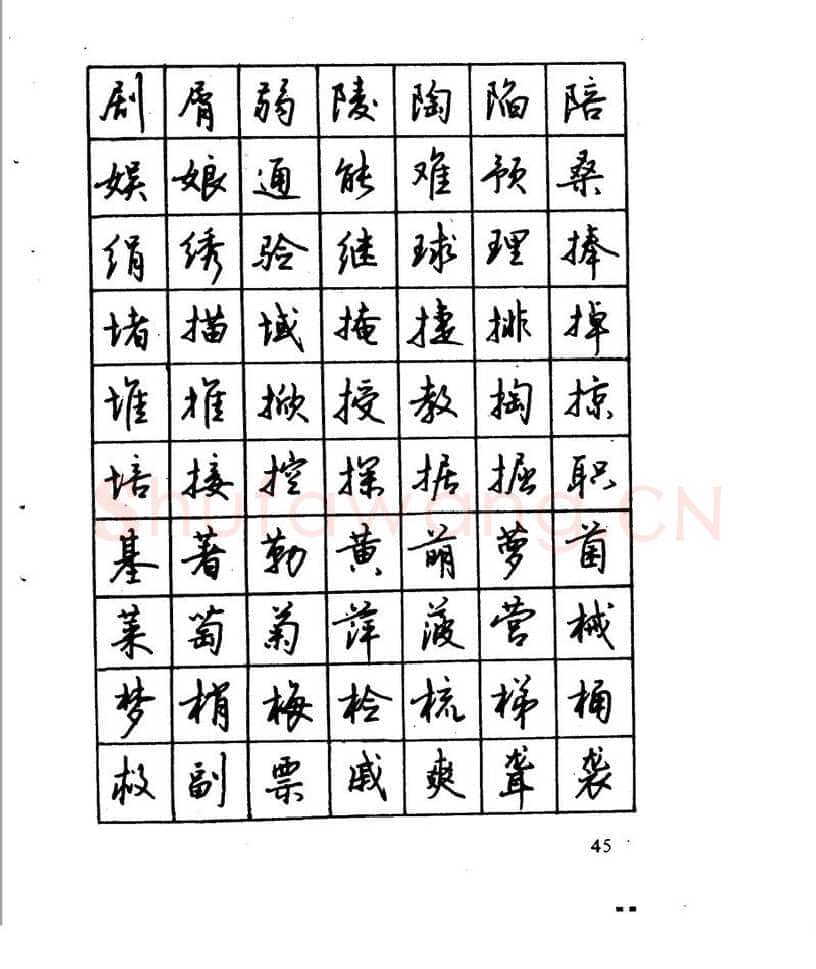 剧 屑 弱 陵 陶 陷 陪
娱 娘 通 能 难 预 桑
绢 绣 验 继 球 理 捧
堵 描 域 掩 捷 排 掉
堆 推 掀 授 教 掏 掠
培 接 控 探 据 掘 职
Shufawang.CN
基 著 勒 黄 萌 萝 菌
菜 萄 菊 萍 菠 营 械
梦 梢 梅 检 梳 梯 桶
救 副 票 戚 爽 聋 袭
45